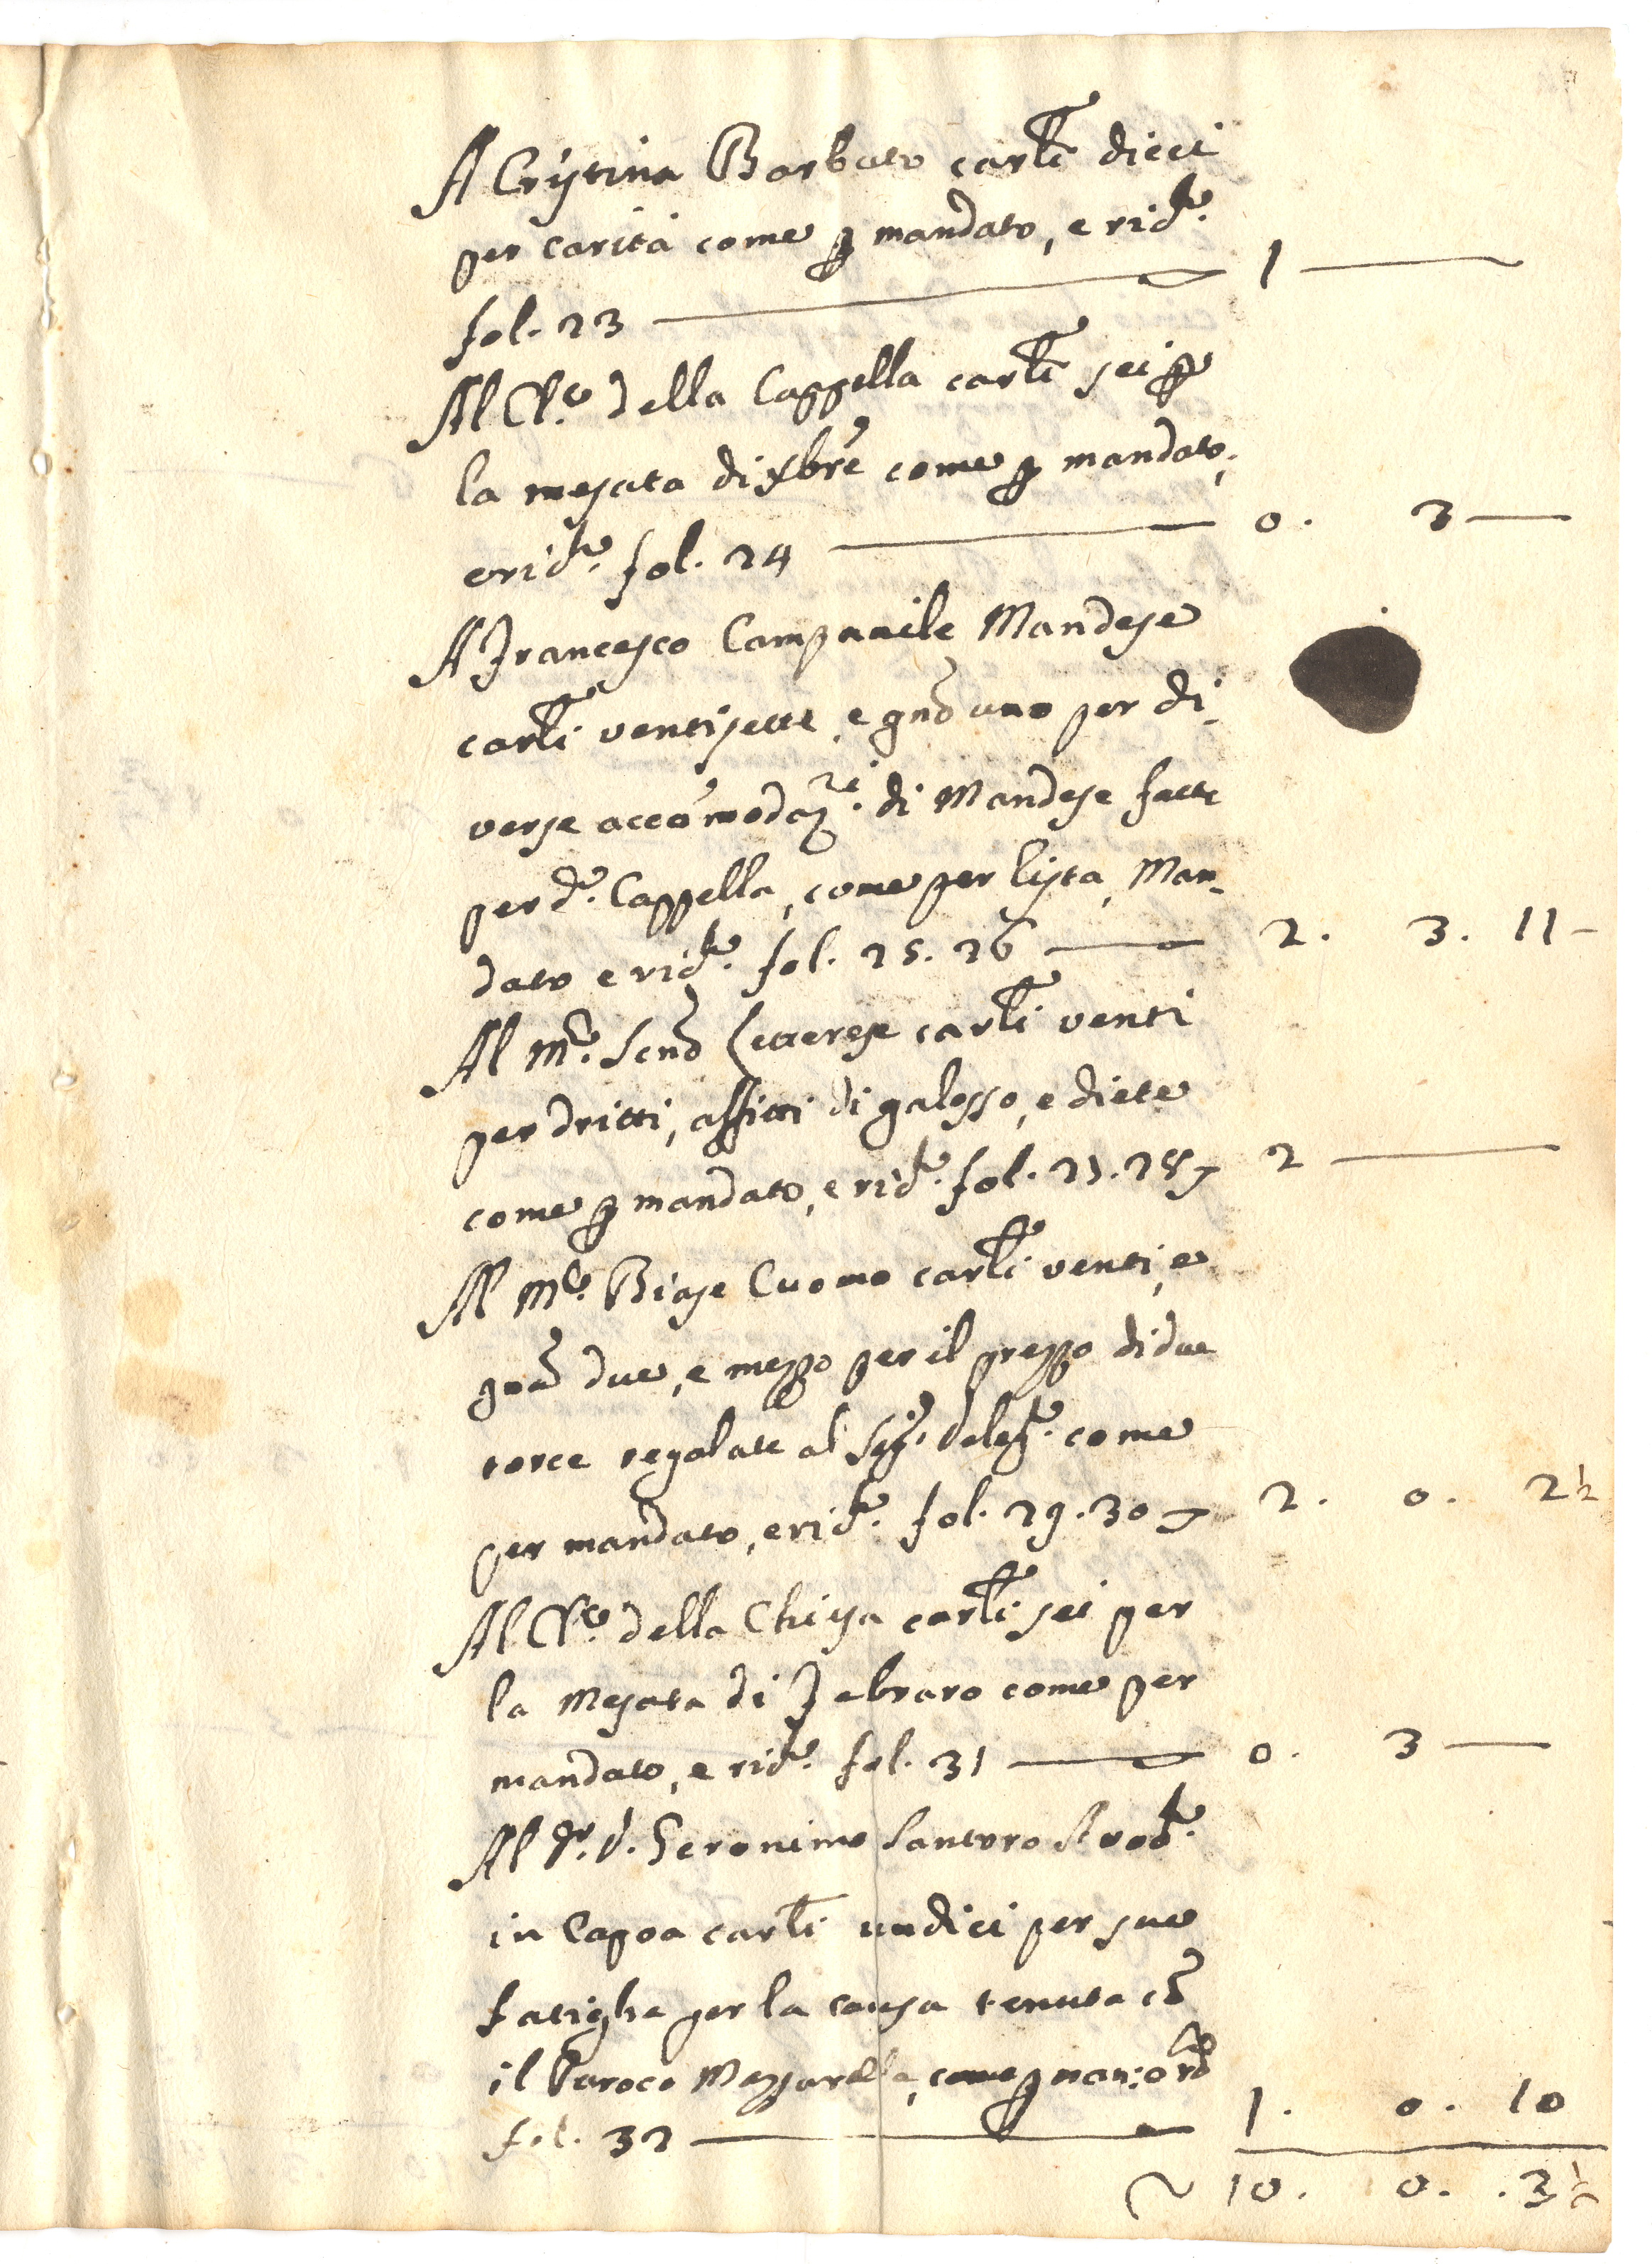 A Cristina Barbato carlī dieci
per carità come ꝑ mandato, e ricta.
fol. 23 — 1 —
Al Clo. della Cappella carlī sei ꝑ
la mesata di Xbre come ꝑ mandato,
e ricta. fol. 24 — 0. 3 —
A Francesco Campanile Mandese
carlī ventisette, e gnō uno per di-
verse accomodazni. di Mandese fatte
per da. Cappella, come per lista, Man-
dato e ricta. fol. 25. 26 — 2. 3. 11 -
Al Mco. Lettere carlī venti
per dritti, affitti di galesso, e diete
come ꝑ mandato, e ricta. fol. 27. 28 2 —
Al Mco. Biase Cuomo carlī venti, e
gnā due, e mezzo per il prezzo di due
torce regalate al Sigr. Deleg. come
per mandato, e ricta. fol. 29. 30 2. 0. 2½
Al Clo. della Chiesa carlī sei per
la Mesata di Febraro come per
mandato, e ricta. fol. 31 — 0. 3 —
Al Dr. D. Geronimo Santoro
in Capoa carlī undici per sue
fatighe per la causa tenuta cō
il Paroco Mazzarella, come ꝑ man:
fol. 32 — 1. 0. 10
10. 0. 3½